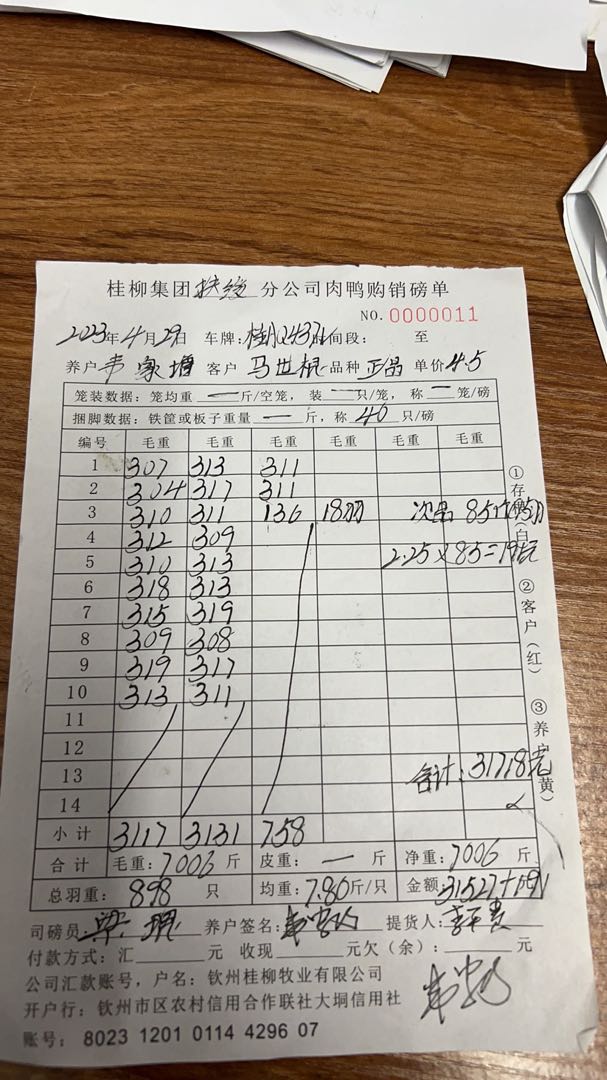 桂柳集团扶绥分公司肉鸭购销磅单
NO.0000011
2023年4月29日 车牌: 时间段: 至
养户 韦家增 客户 马世根 品种 正品 单价 4.5
笼装数据：笼均重 — 斤/空笼，装 — 只/笼，称 — 笼/磅
捆脚数据：铁筐或板子重量 — 斤，称 40 只/磅
编号 毛重 毛重 毛重 毛重 毛重 毛重
1 307 313 311
2 304 317 311
3 310 311 136 18羽 次品 85
4 312 309
5 310 313 2.25×85=191元
6 318 313
7 315 319
8 309 308
9 319 317
10 313 311
11
12
13 合计：31718元
14
小计 3117 3131 758
合计 毛重：7006 斤 皮重：— 斤 净重：7006 斤
总羽重：898 只 均重：7.80 斤/只 金额：31527+191
司磅员 养户签名： 提货人：
付款方式：汇 元 收现 元欠（余）： 元
公司汇款账号，户名：钦州桂柳牧业有限公司
开户行：钦州市区农村信用合作联社大垌信用社
账号：8023 1201 0114 4296 07
①存根（白）
②客户（红）
③养户（黄）